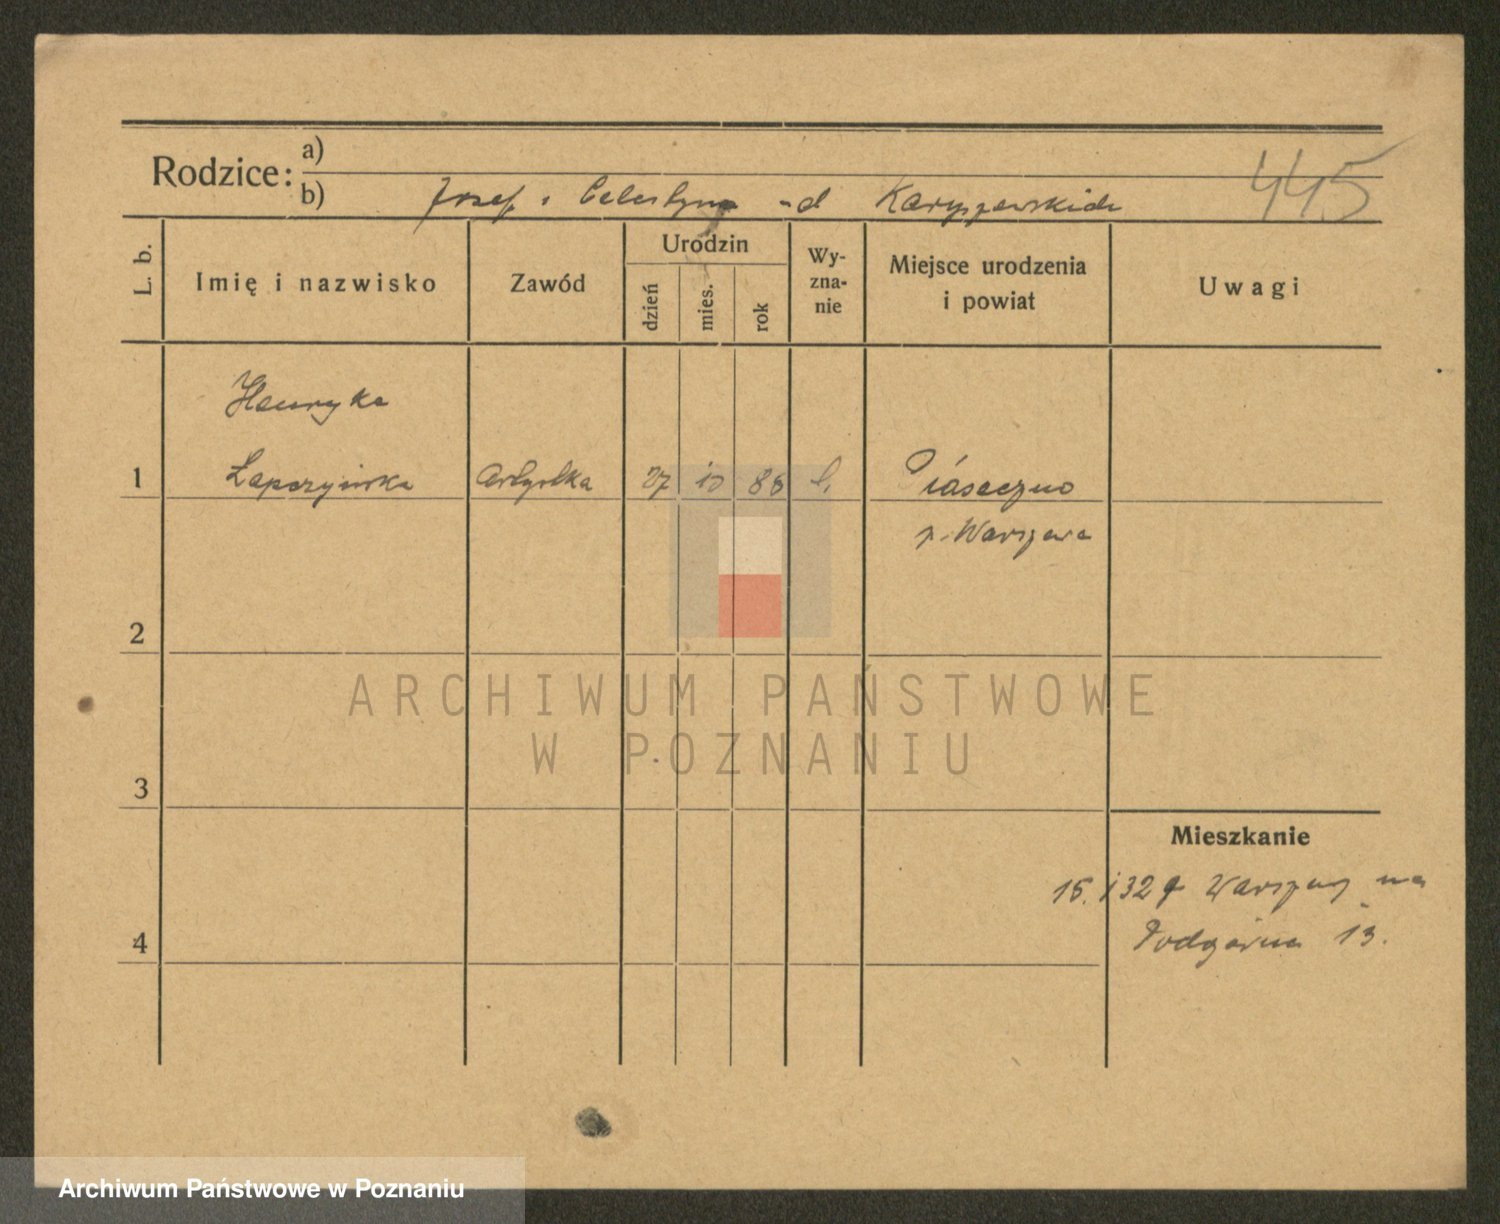 Rodzice:
a)
b) Józef i Celestyna -d Karyszewskich
445
L. b.
Imię i nazwisko
Zawód
Urodzin
dzień
mies.
rok
Wy-
zna-
nie
Miejsce urodzenia
i powiat
Uwagi
Henryka
1 Łapczyńska artystka 27 10 88 Piaseczno
p. Warszawa
2
3
4
Mieszkanie
15. 1 32 Warszawy na
Podgórna 13.
ARCHIWUM PAŃSTWOWE
W POZNANIU
Archiwum Państwowe w Poznaniu